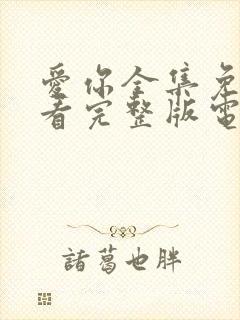 愛你全集免
看完整版電
諸葛也胖